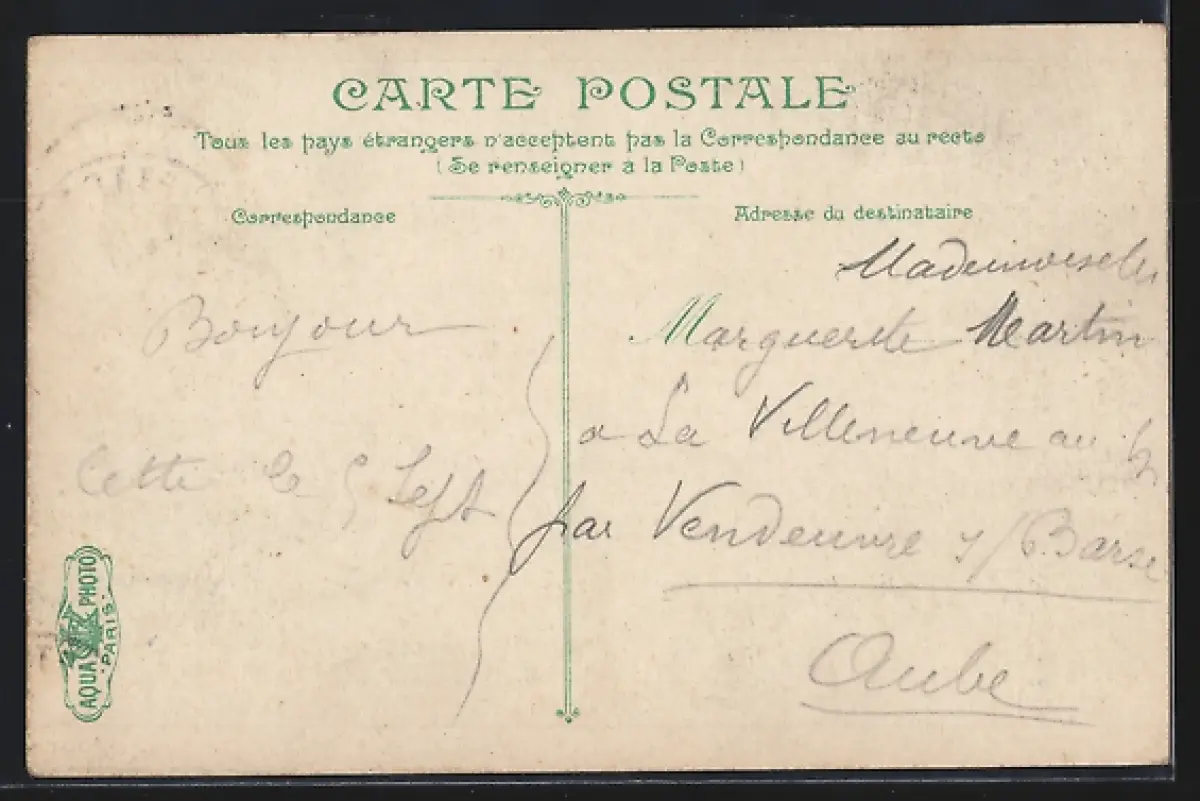 CARTE POSTALE
Tous les pays étrangers n'acceptent pas la Correspondance au recto
(Se renseigner à la Poste)
Correspondance
Bonjour
Cette le 5 Sept
Adresse du destinataire
Mademoiselle
Marguerite Martin
a La Villeneuve au
par Vendeuvre s/ Barse
Aube
AQUA PHOTO
PARIS